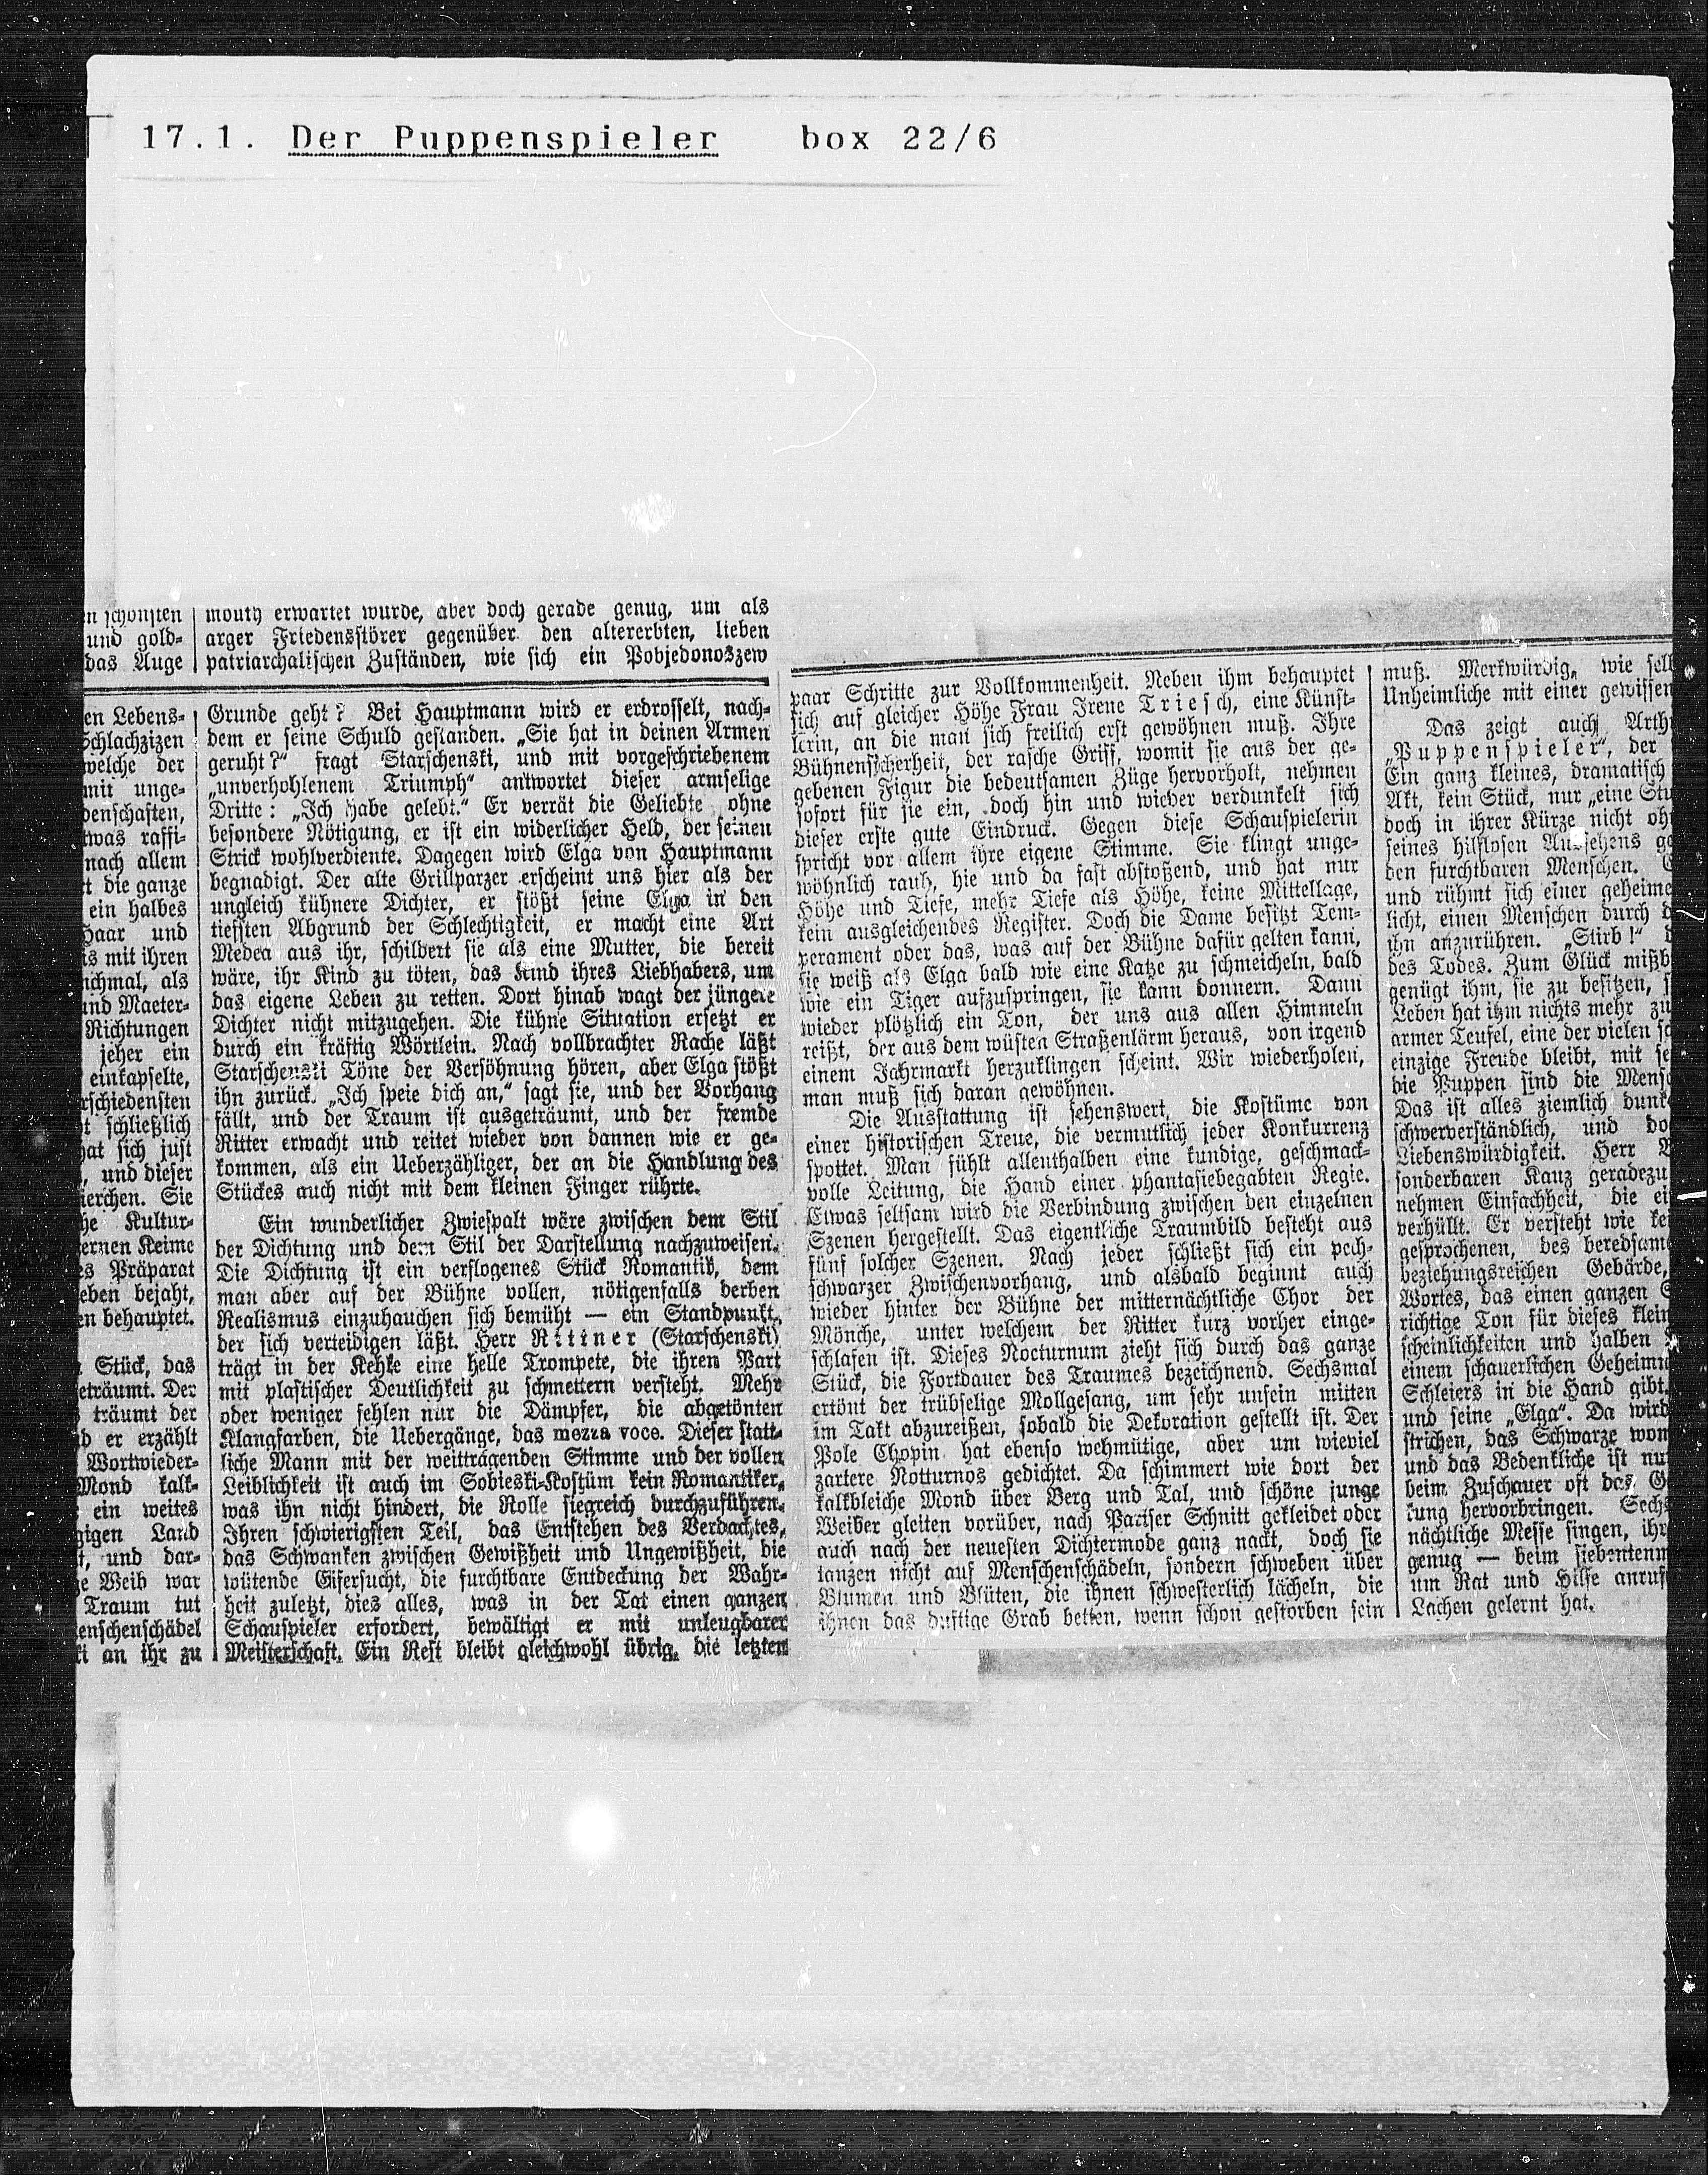 17.1. Der Puppenspieler box 22/6
n schönsten
und gold-
das Auge
en Lebens-
Schlachzizen
welche der
mit unge-
denschaften,
twas raffi-
nach allem
t die ganze
ein halbes
Haar und
is mit ihren
nchmal, als
und Maeter-
Richtungen
jeher ein
einkapselte,
rschiedensten
t schließlich
hat sich just
, und dieser
ierchen. Sie
he Kultur-
ernen Keime
es Präparat
eben bejaht,
en behauptet.
Stück, das
eträumt. Der
träumt der
d er erzählt
Wortwieder-
Mond kalk-
ein weites
gigen Land
t, und dar-
ge Weib war
Traum tut
enschenschädel
ki an ihr zu
mouth erwartet wurde, aber doch gerade genug, um als
arger Friedensstörer gegenüber den altererbten, lieben
patriarchalischen Zuständen, wie sich ein Pobjedonoszew
Grunde geht? Bei Hauptmann wird er erdrosselt, nach-
dem er seine Schuld gestanden. „Sie hat in deinen Armen
geruht?“ fragt Starschenski, und mit vorgeschriebenem
„unverhohlenem Triumph“ antwortet dieser armselige
Dritte: „Ich habe gelebt.“ Er verrät die Geliebte ohne
besondere Nötigung, er ist ein widerlicher Held, der seinen
Strick wohlverdiente. Dagegen wird Elga von Hauptmann
begnadigt. Der alte Grillparzer erscheint uns hier als der
ungleich kühnere Dichter, er stößt seine Elga in den
tiefsten Abgrund der Schlechtigkeit, er macht eine Art
Medea aus ihr, schildert sie als eine Mutter, die bereit
wäre, ihr Kind zu töten, das Kind ihres Liebhabers, um
das eigene Leben zu retten. Dort hinab wagt der jüngere
Dichter nicht mitzugehen. Die kühne Situation ersetzt er
durch ein kräftig Wörtlein. Nach vollbrachter Rache läßt
Starschenski Töne der Versöhnung hören, aber Elga stößt
ihn zurück. „Ich speie dich an,“ sagt sie, und der Vorhang
fällt, und der Traum ist ausgeträumt, und der fremde
Ritter erwacht und reitet wieder von dannen wie er ge-
kommen, als ein Ueberzähliger, der an die Handlung des
Stückes auch nicht mit dem kleinen Finger rührte.
Ein wunderlicher Zwiespalt wäre zwischen dem Stil
der Dichtung und dem Stil der Darstellung nachzuweisen.
Die Dichtung ist ein verflogenes Stück Romantik, dem
man aber auf der Bühne vollen, nötigenfalls derben
Realismus einzuhauchen sich bemüht — ein Standpunkt,
der sich verteidigen läßt. Herr Rittner (Starschenski)
trägt in der Kehle eine helle Trompete, die ihren Part
mit plastischer Deutlichkeit zu schmettern versteht. Mehr
oder weniger fehlen nur die Dämpfer, die abgetönten
Klangfarben, die Uebergänge, das mezza voce. Dieser statt-
liche Mann mit der weittragenden Stimme und der vollen
Leiblichkeit ist auch im Sobieski-Kostüm kein Romantiker,
was ihn nicht hindert, die Rolle siegreich durchzuführen.
Ihren schwierigsten Teil, das Entstehen des Verdachtes,
das Schwanken zwischen Gewißheit und Ungewißheit, die
wütende Eifersucht, die furchtbare Entdeckung der Wahr-
heit zuletzt, dies alles, was in der Tat einen ganzen
Schauspieler erfordert, bewältigt er mit unleugbarer
Meisterschaft. Ein Rest bleibt gleichwohl übrig, die letzten
paar Schritte zur Vollkommenheit. Neben ihm behauptet
sich auf gleicher Höhe Frau Irene Triesch, eine Künst-
lerin, an die man sich freilich erst gewöhnen muß. Ihre
Bühnensicherheit, der rasche Griff, womit sie aus der ge-
gebenen Figur die bedeutsamen Züge hervorholt, nehmen
sofort für sie ein, doch hin und wieder verdunkelt sich
dieser erste gute Eindruck. Gegen diese Schauspielerin
spricht vor allem ihre eigene Stimme. Sie klingt unge-
wöhnlich rauh, hie und da fast abstoßend, und hat nur
Höhe und Tiefe, mehr Tiefe als Höhe, keine Mittellage,
kein ausgleichendes Register. Doch die Dame besitzt Tem-
perament oder das, was auf der Bühne dafür gelten kann,
sie weiß als Elga bald wie eine Katze zu schmeicheln, bald
wie ein Tiger aufzuspringen, sie kann donnern. Dann
wieder plötzlich ein Ton, der uns aus allen Himmeln
reißt, der aus dem wüsten Straßenlärm heraus, von irgend
einem Jahrmarkt herzuklingen scheint. Wir wiederholen,
man muß sich daran gewöhnen.
Die Ausstattung ist sehenswert, die Kostüme von
einer historischen Treue, die vermutlich jeder Konkurrenz
spottet. Man fühlt allenthalben eine kundige, geschmack-
volle Leitung, die Hand einer phantasiebegabten Regie.
Etwas seltsam wird die Verbindung zwischen den einzelnen
Szenen hergestellt. Das eigentliche Traumbild besteht aus
fünf solcher Szenen. Nach jeder schließt sich ein pech-
schwarzer Zwischenvorhang, und alsbald beginnt auch
wieder hinter der Bühne der mitternächtliche Chor der
Mönche, unter welchem der Ritter kurz vorher einge-
schlafen ist. Dieses Nocturnum zieht sich durch das ganze
Stück, die Fortdauer des Traumes bezeichnend. Sechsmal
ertönt der trübselige Mollgesang, um sehr unfein mitten
im Takt abzureißen, sobald die Dekoration gestellt ist. Der
Pole Chopin hat ebenso wehmütige, aber um wieviel
zartere Notturnos gedichtet. Da schimmert wie dort der
kalkbleiche Mond über Berg und Tal, und schöne junge
Weiber gleiten vorüber, nach Pariser Schnitt gekleidet oder
auch nach der neuesten Dichtermode ganz nackt, doch sie
tanzen nicht auf Menschenschädeln, sondern schweben über
Blumen und Blüten, die ihnen schwesterlich lächeln, die
ihnen das duftige Grab betten, wenn schon gestorben sein
muß. Merkwürdig, wie sel
Unheimliche mit einer gewissen
Das zeigt auch Arth
„Puppenspieler“, der
Ein ganz kleines, dramatisch
Akt, kein Stück, nur „eine Stu
doch in ihrer Kürze nicht oh
seines hilflosen Aussehens ge
den furchtbaren Menschen.
und rühmt sich einer geheime
licht, einen Menschen durch d
ihn anzurühren. „Stirb!“ d
des Todes. Zum Glück mißb
genügt ihm, sie zu besitzen, s
Leben hat ihm nichts mehr zu
armer Teufel, eine der vielen sc
einzige Freude bleibt, mit se
die Puppen sind die Mensc
Das ist alles ziemlich dunk
schwerverständlich, und do
Liebenswürdigkeit. Herr B
sonderbaren Kauz geradezu
nehmen Einfachheit, die ei
verhüllt. Er versteht wie kei
gesprochenen, des beredsame
beziehungsreichen Gebärde,
Wortes, das einen ganzen
richtige Ton für dieses klein
scheinlichkeiten und halben
einem schauerlichen Geheimn
Schleiers in die Hand gibt.
und seine „Elga“. Da wird
strichen, das Schwarze wom
und das Bedenkliche ist nu
beim Zuschauer oft das G
kung hervorbringen. Sechs
nächtliche Messe singen, ihr
genug — beim siebentenm
um Rat und Hilfe anruf
Lachen gelernt hat.